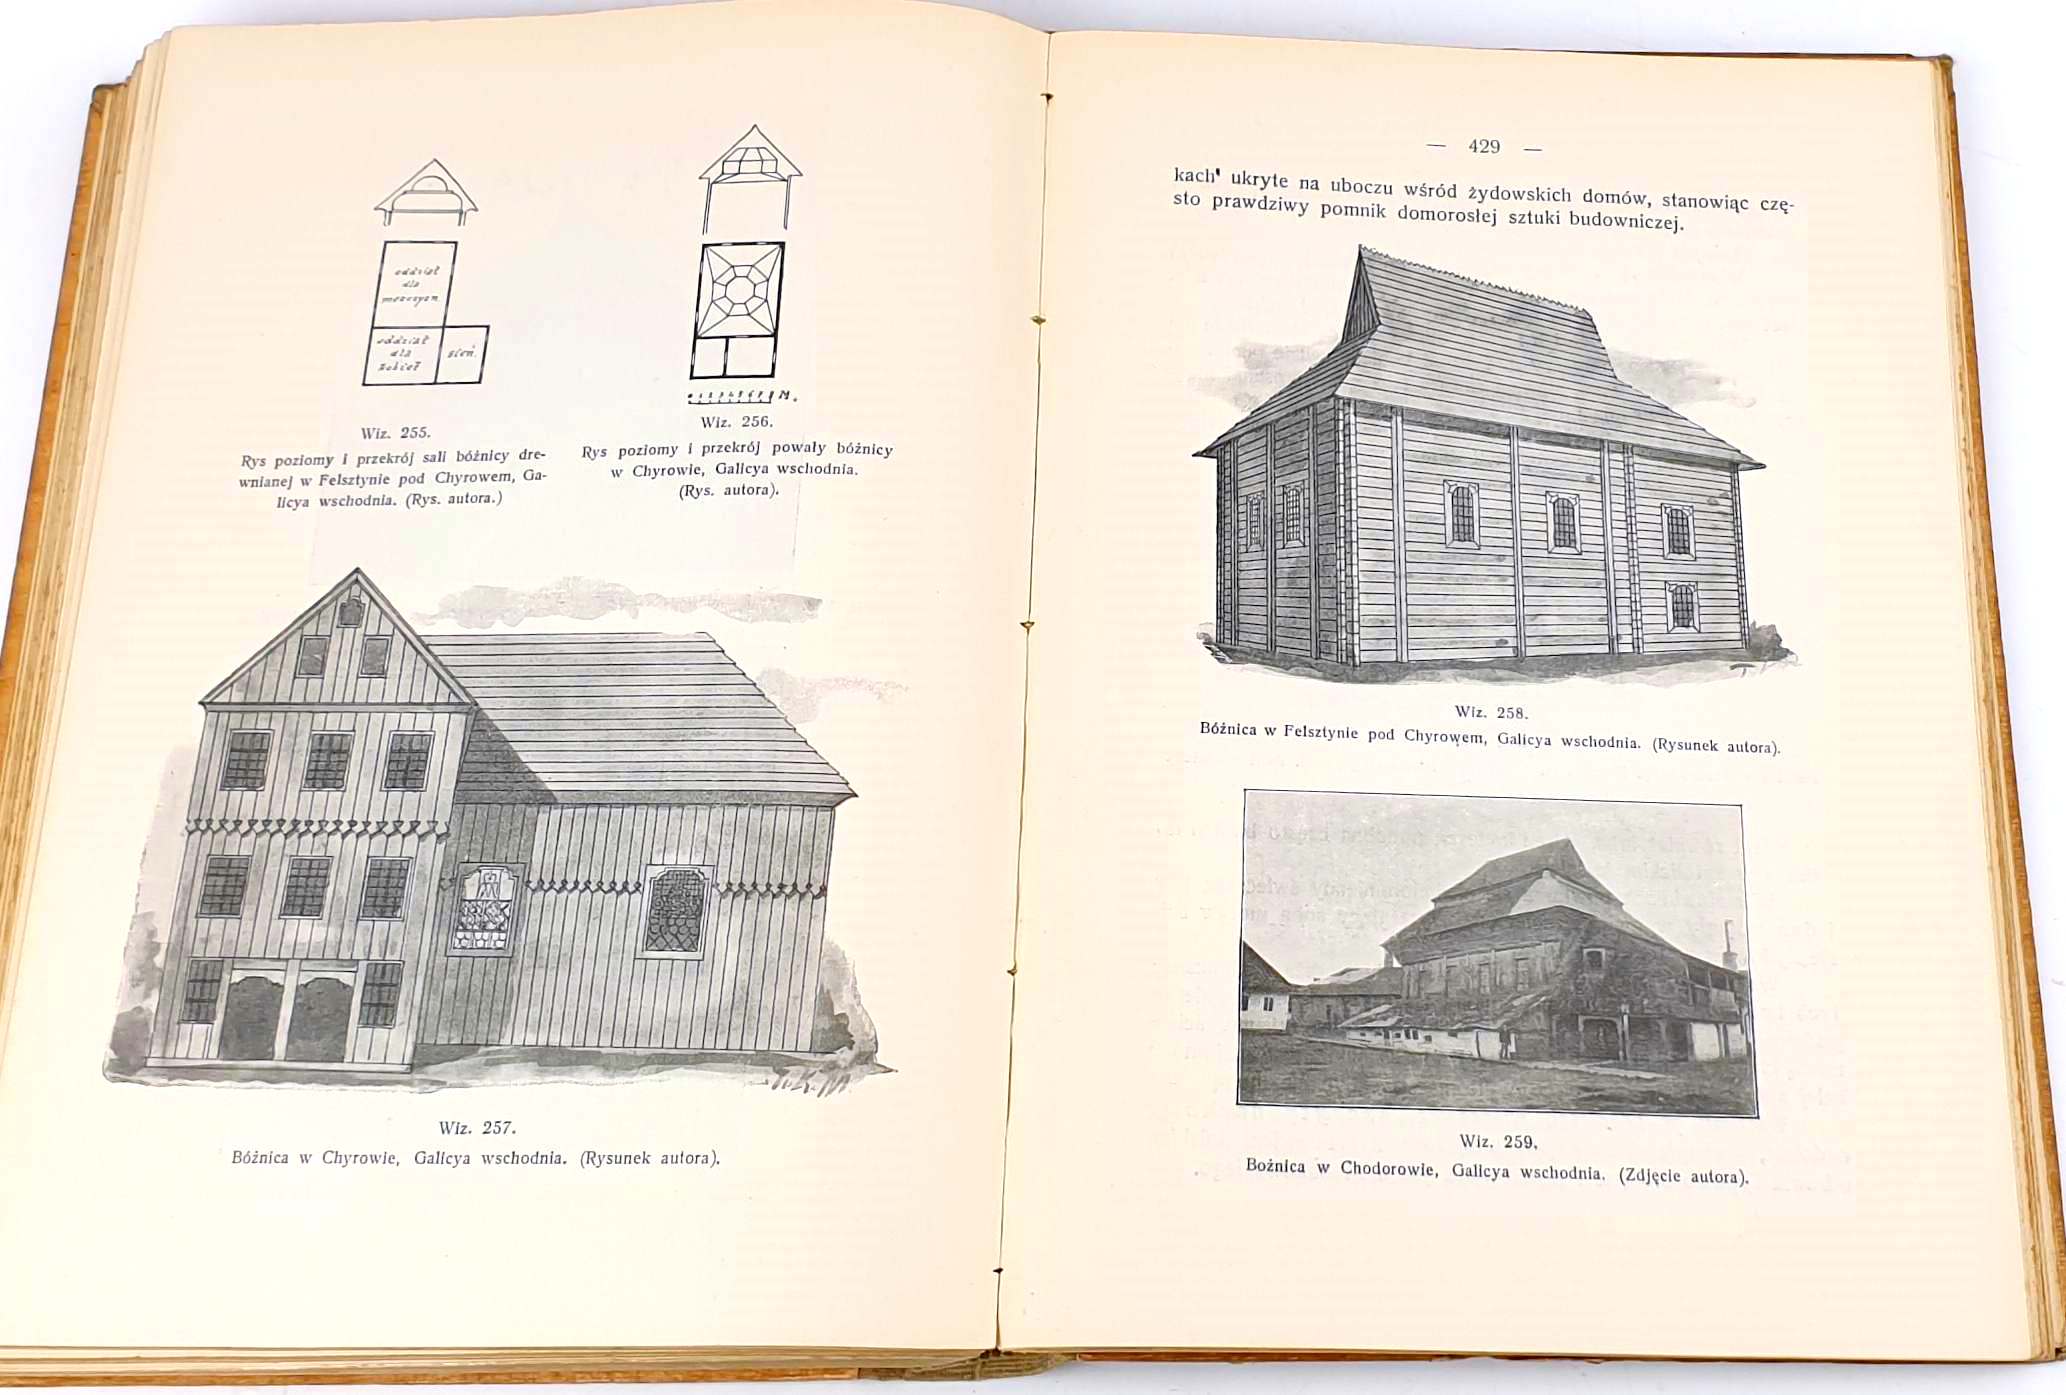 oddział
dla
mężczyzn
oddział
dla
kobiet
sień.
Wiz. 255.
Rys poziomy i przekrój sali bóżnicy dre-
wnianej w Felsztynie pod Chyrowem, Ga-
licya wschodnia. (Rys. autora.)
M.
Wiz. 256.
Rys poziomy i przekrój powały bóżnicy
w Chyrowie, Galicya wschodnia.
(Rys. autora).
Wiz. 257.
Bóżnica w Chyrowie, Galicya wschodnia. (Rysunek autora).
— 429 —
kach' ukryte na uboczu wśród żydowskich domów, stanowiąc czę-
sto prawdziwy pomnik domorosłej sztuki budowniczej.
Wiz. 258.
Bóżnica w Felsztynie pod Chyrowem, Galicya wschodnia. (Rysunek autora).
Wiz. 259.
Bożnica w Chodorowie, Galicya wschodnia. (Zdjęcie autora).